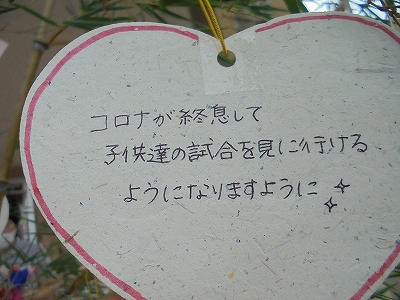 コロナが終息して
子供達の試合を見に行ける
ようになりますように